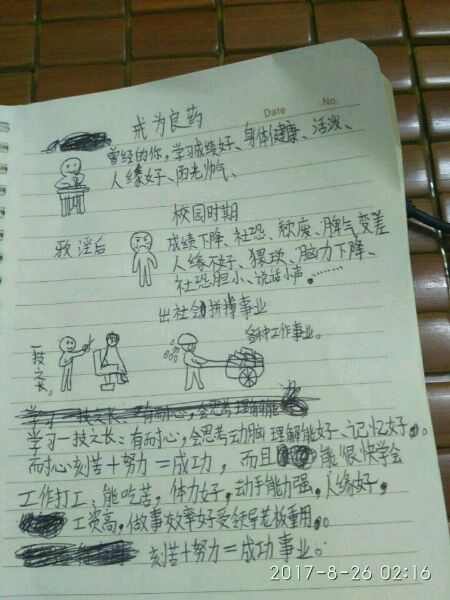 Date No.
戒为良药
曾经的你,学习成绩好、身体健康、活泼、
人缘好、阳光帅气、
校园时期
邪淫后
成绩下降、社恐、颓废、脾气变差
人缘不好、猥琐、脑力下降、
社恐胆小、说话小声。……
出社会拼搏事业
一技之长。
各种工作事业。
学习一技之长:有耐心,会思考理解能
学习一技之长:有耐心,会思考动脑 理解能好、记忆好。
耐心刻苦+努力=成功,而且能很快学会
工作打工:能吃苦,体力好,动手能力强,人缘好,
工资高,做事效率好受领导老板重用。
刻苦+努力=成功事业。
2017-8-26 02:16